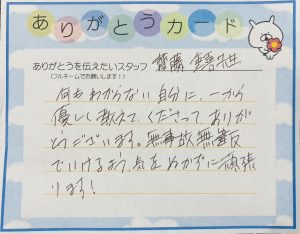 ありがとうカード
ありがとうを伝えたいスタッフ
(フルネームでお願いします!)
齋藤 先生
何もわからない自分に、一から
優しく教えてくださって、ありが
とうございます。無事故無違反
でいけるよう、気をぬかずに頑張
ります!